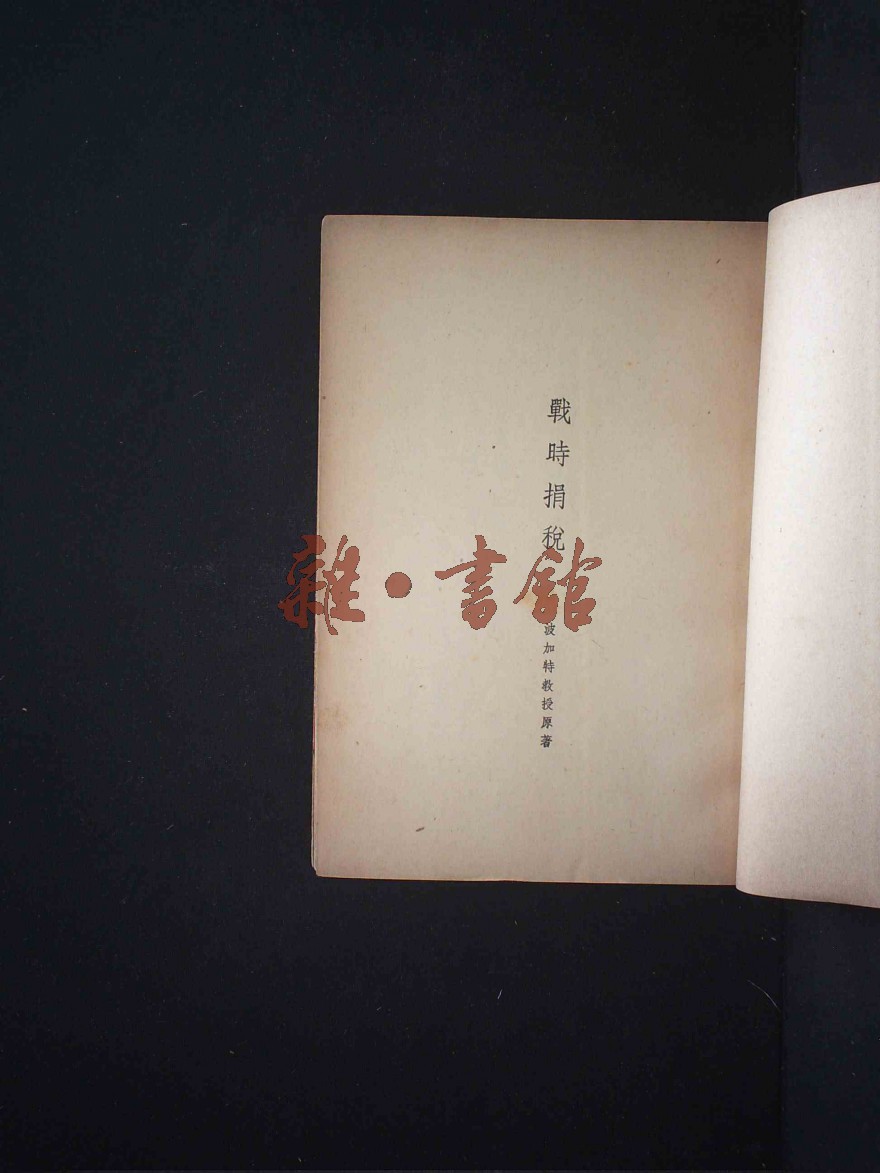 戰時捐稅
波加特教授原著
雜·書館